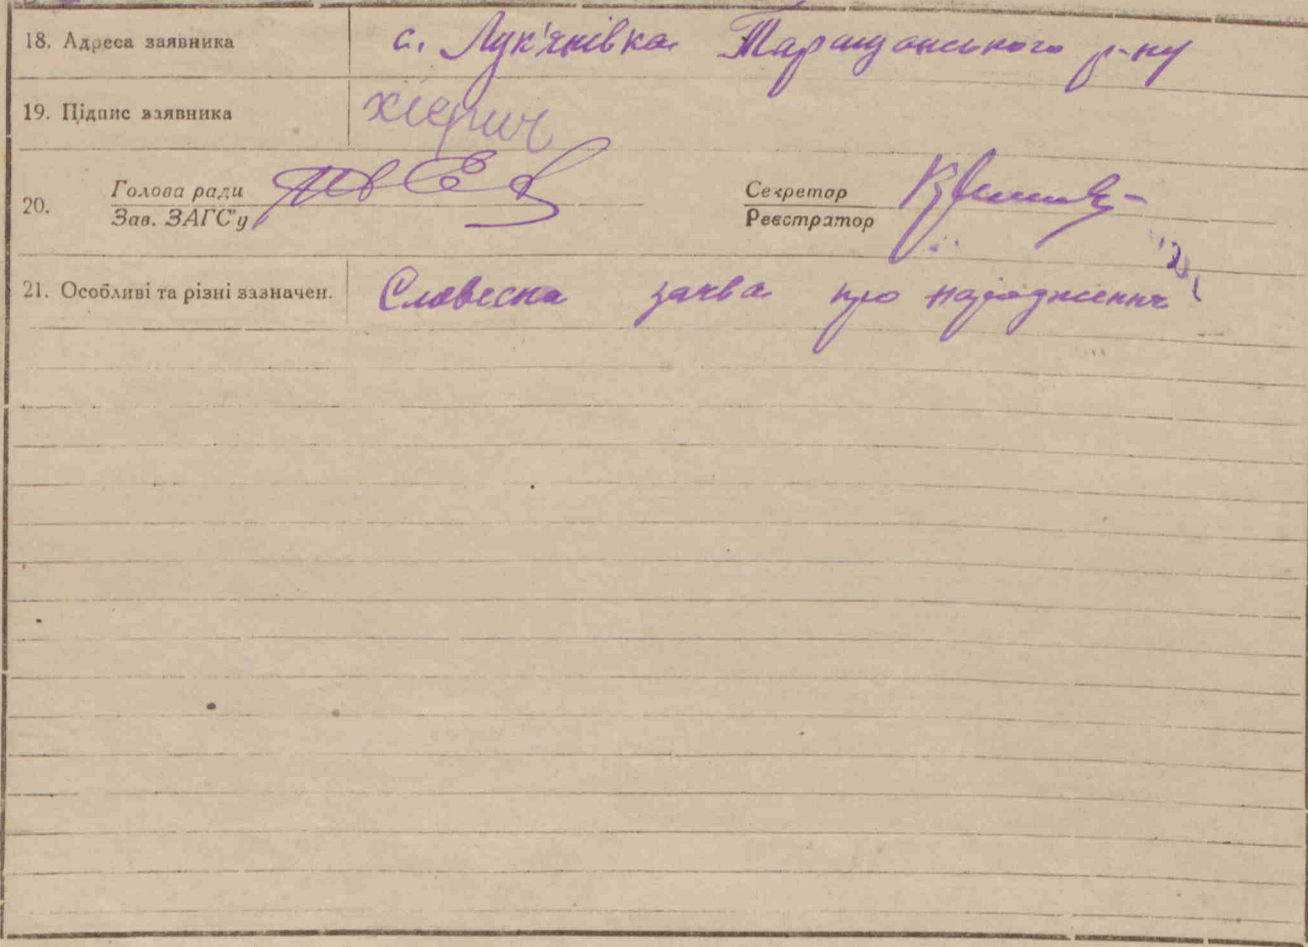 18. Адреса заявника с. Лук'янівка Таращанського р-ну
19. Підпис заявника
20. Голова ради Секретар
Зав. ЗАГС'у Реєстратор
21. Особливі та різні зазначен. Словесна заява про народження